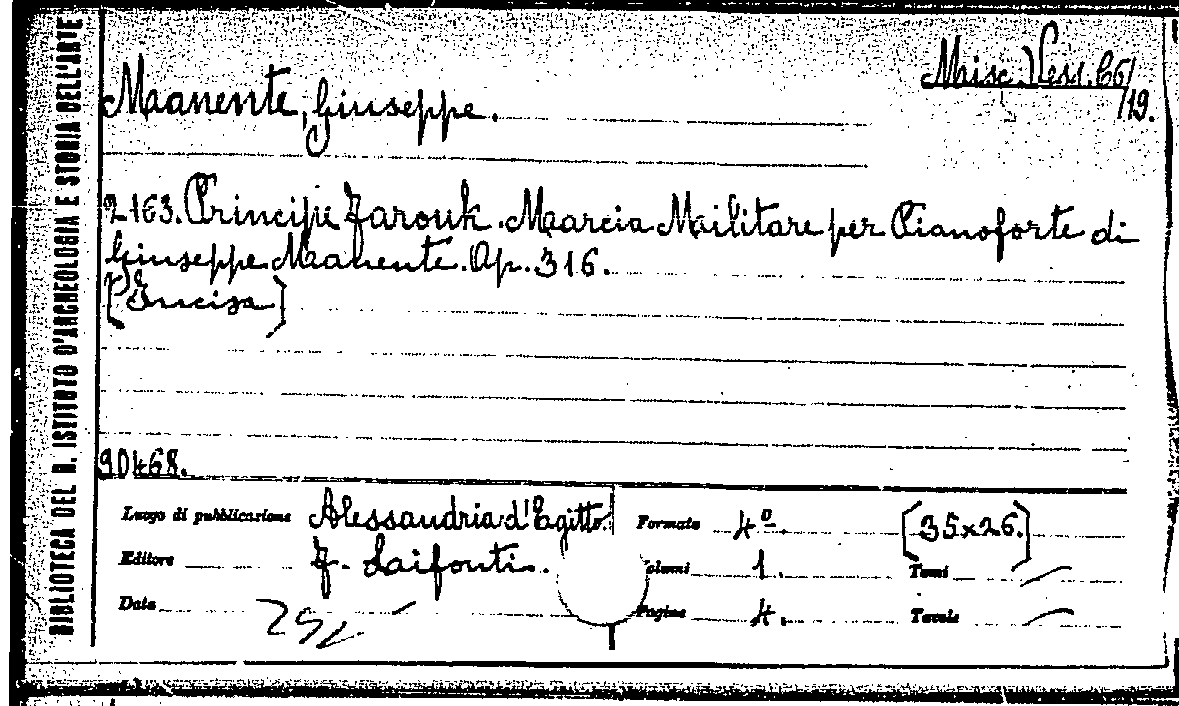 BIBLIOTECA DEL R. ISTITUTO D'ARCHEOLOGIA E STORIA DELL'ARTE
Misc. Vess. 66/19.
Manente, Giuseppe.
2163. Principe Farouk. Marcia Militare per Pianoforte di
Giuseppe Manente. Op. 316.
[Incisa]
90468.
Luogo di pubblicazione Alessandria d'Egitto.
Editore
Data
Formato 4º. [35x26.]
Volumi 1. Tomi —
Pagine 4. Tavole —